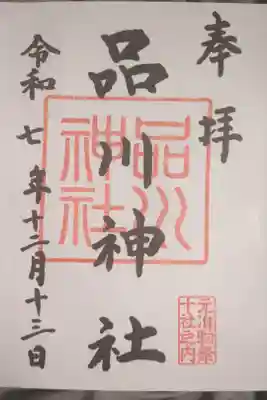 奉拝
品川神社
品川神社
元准勅祭十社之内
令和七年十二月十三日